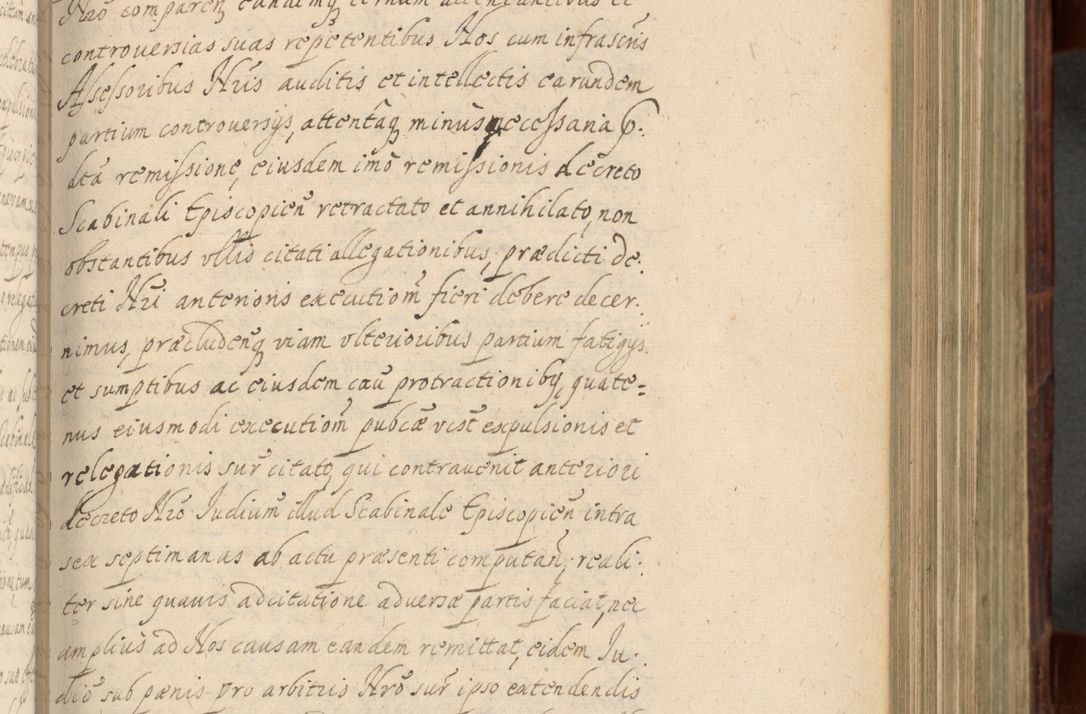 controversias suas repetentibus Nos cum infrascris
Assessoribus Nris auditis et intellectis earundem
partium controversijs, attentaq minus necessaria p.
dcta remissione, eiusdem imo remissionis decreto
Scabinali Episcopien retractato et annihilato, non
obstantibus ullis citati allegationibus, prædicti de:
creti Nri anterioris executiom fieri debere decer:
nimus, præcludenq viam ulterioribus partium fatigijs
et sumptibus ac eiusdem cau protractionibq, quate=
nus eiusmodi executiom pubcæ vest expulsionis et
relegationis sur citato, qui contravenit anteriori
decreto Nro Judium illud Scabinale Episcopien intra
sex septimanas ab actu præsenti computan, reali:
ter sine quavis adcitatione adversæ partis faciat, nec
amplius ad Nos causam eandem remittat, eidem Ju:
dio sub pænis pro arbitris Nro sur ipso extendendis